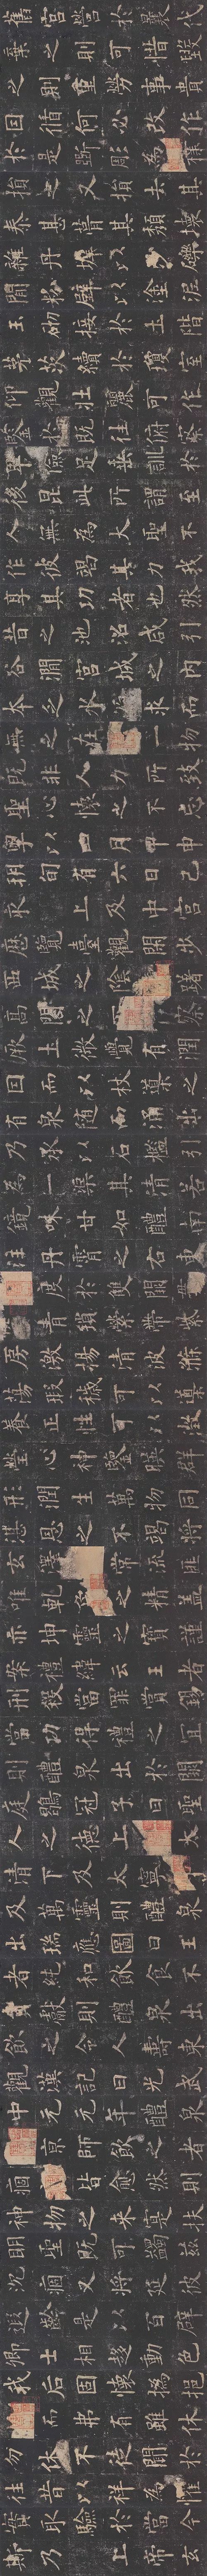 舊宮營於曩代
棄之則可惜毀
之則重勞事貴
因循何必改作
於是斲彫為
損之又損去其
泰甚葺其頹壞
雜丹墀以沙礫
間粉壁以塗泥
玉砌接於土階
茅茨續於瓊室
仰觀壯麗可作
鑒於既往俯察
卑儉足垂訓於
後昆此所謂至
人無為大聖不
作彼竭其力我
享其功者也然
昔之池沼咸引
谷澗宮城之內
本乏水源求而
無之在乎一物
既非人力所致
聖心懷之不忘
粵以四月甲申
朔旬有六日己
亥上及中宮
歷覽臺觀閑步
西城之陰躊躇
高閣之下俯察
厥土微覺有潤
因而以杖導之
有泉隨而涌出
乃承以石檻引
為一渠其清若
鏡味甘如醴南
注丹霄之右東
流度於雙闕貫
穿青瑣縈帶紫
房激揚清波滌
蕩瑕穢可以導
養正性可以澂
瑩心神鑒映群
形潤生萬物同
湛恩之不竭將
玄澤之常流匪
唯乾象之精蓋
亦坤靈之寶謹
案禮緯云王者
刑殺當罪賞錫
當功得禮之宜
則醴泉出於闕
庭鶡冠子曰聖
人之德上及太
清下及太寧中
及萬靈則醴泉
出瑞應圖曰王
者純和飲食不
貢獻則醴泉出
飲之令人壽東
觀漢記曰光武
中元元年醴泉
出京師飲之者
痼疾皆愈然則
神物之來寔扶
明聖既可蠲茲
沉痼又將延彼
遐齡是以百辟
卿士相趨動色
我后固懷撝挹
推而弗有雖休
勿休不徒聞於
往昔以祥為懼
實取驗於當今
斯乃上帝玄